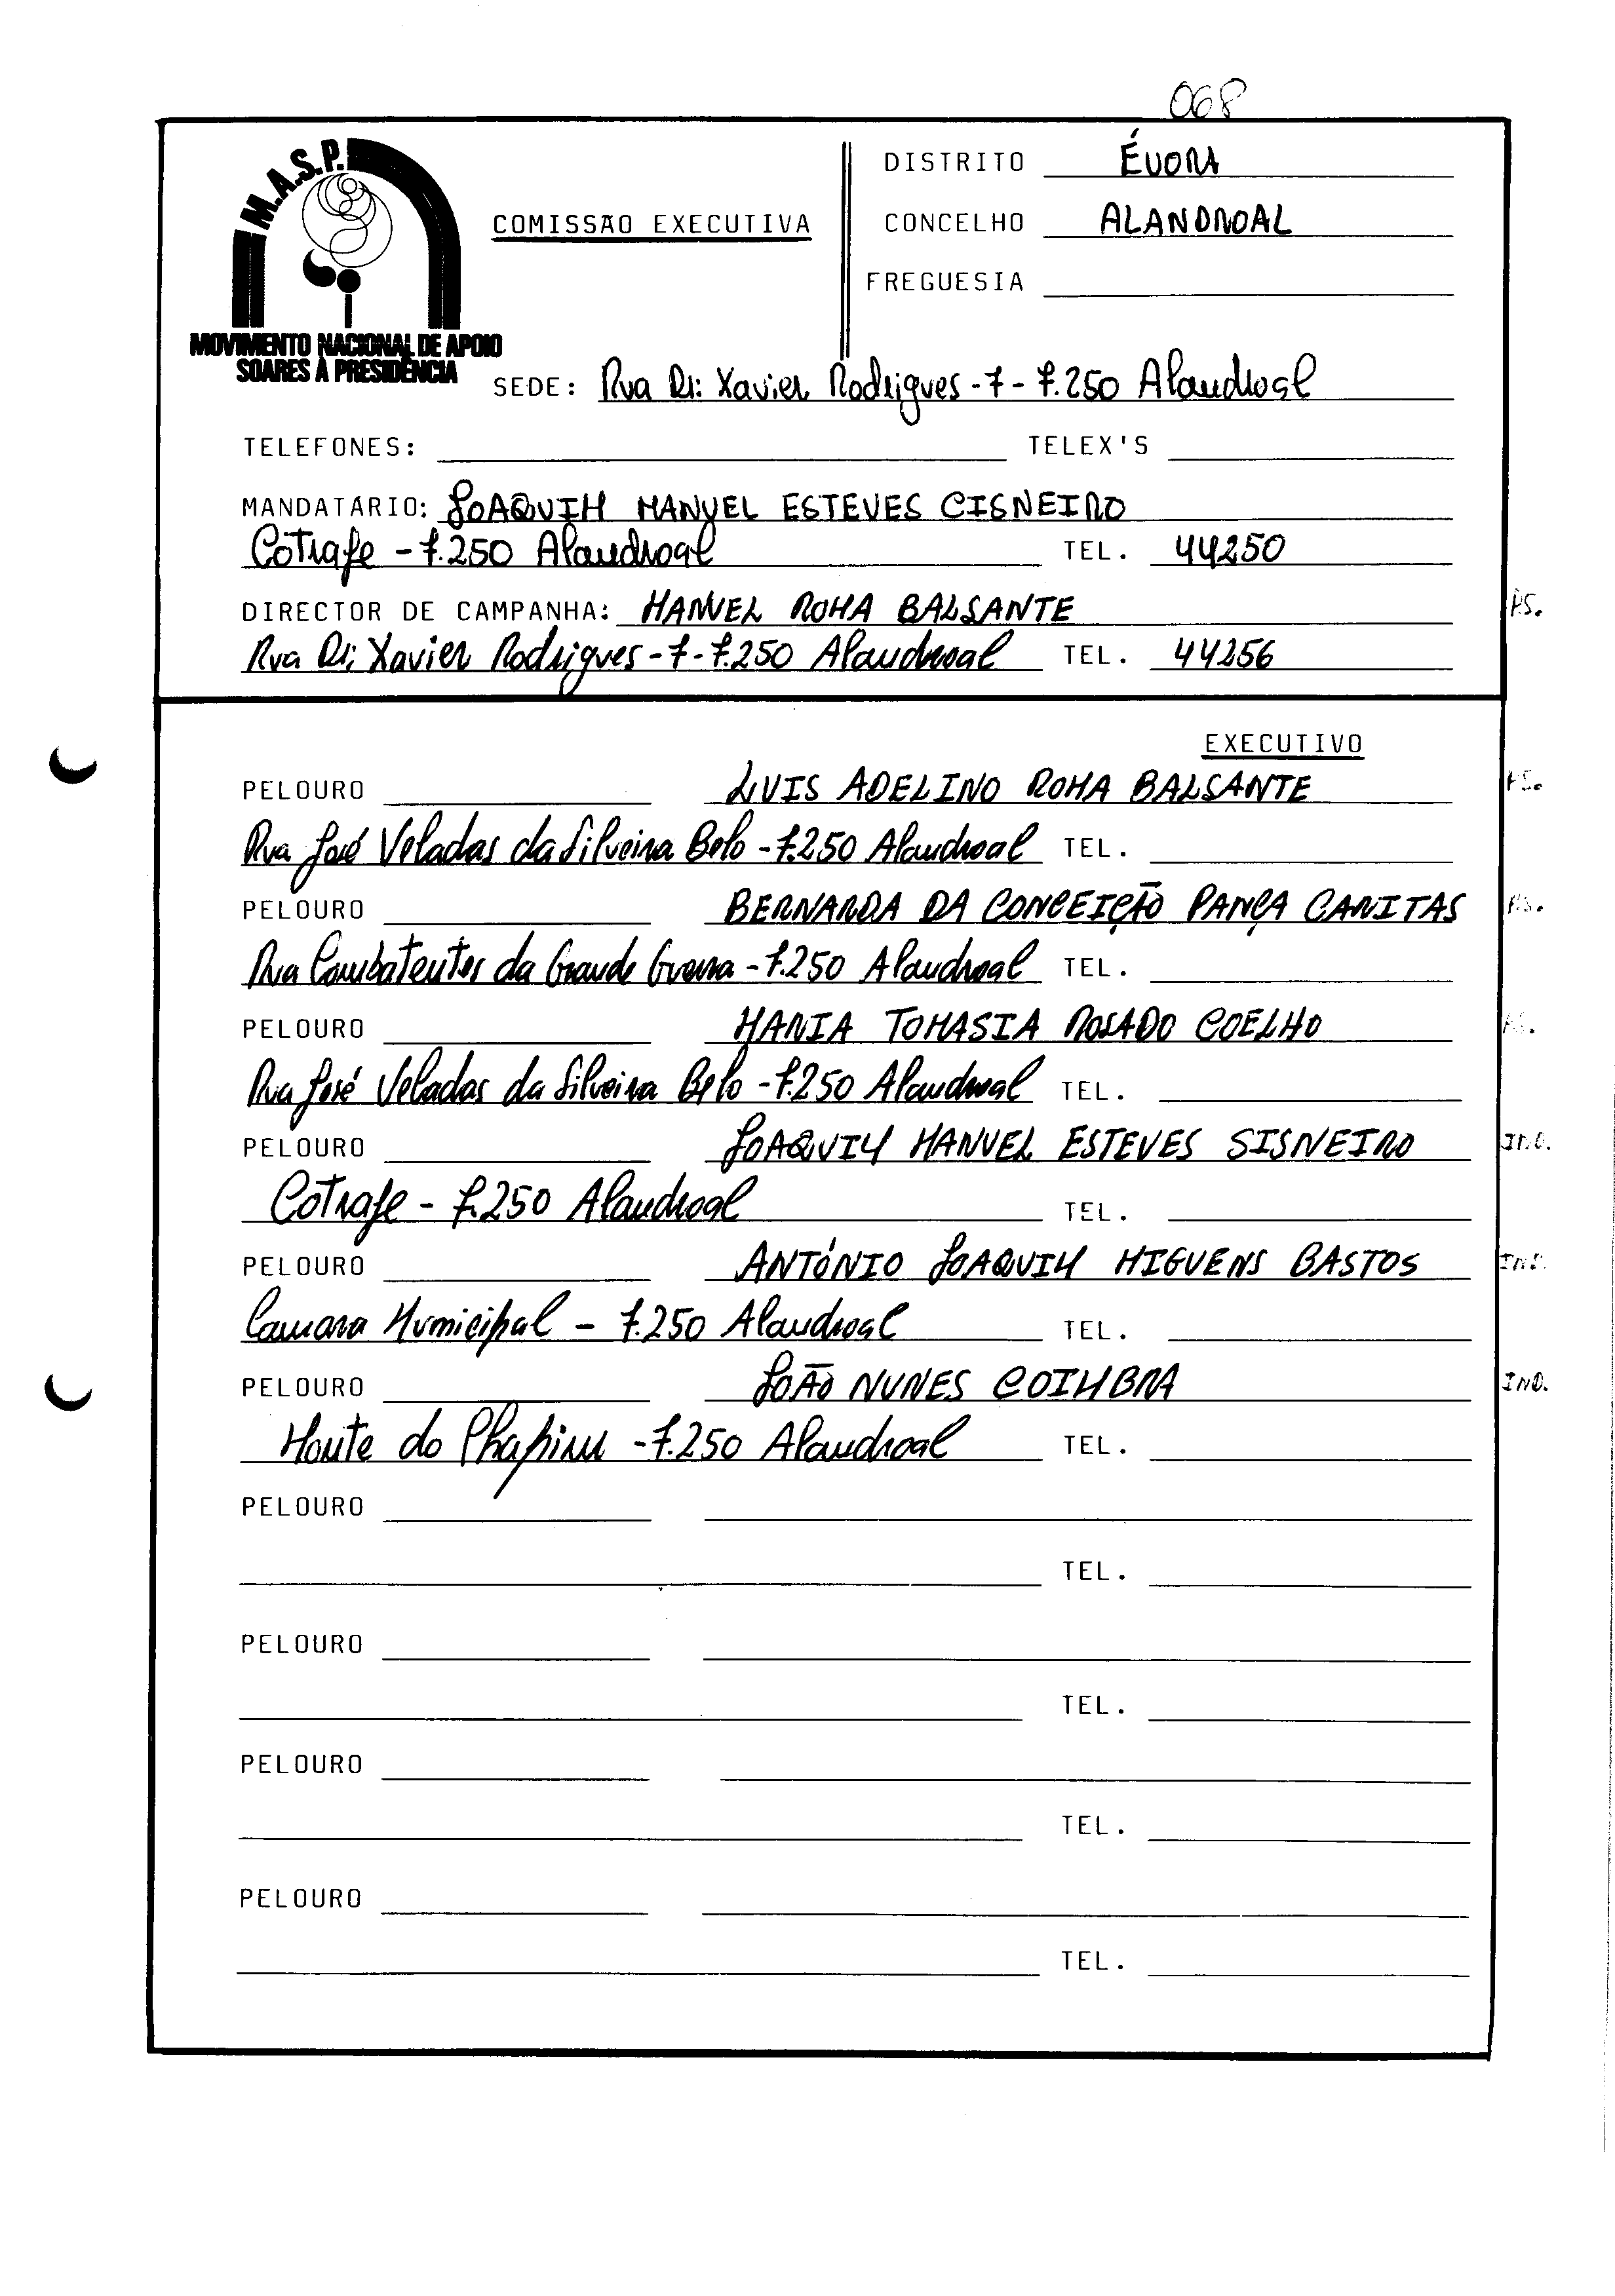 068
M.A.S.P.
MOVIMENTO NACIONAL DE APOIO
SOARES À PRESIDÊNCIA
COMISSÃO EXECUTIVA
DISTRITO ÉVORA
CONCELHO ALANDROAL
FREGUESIA
SEDE: Rua Dr: Xavier Rodrigues - 7 - 7.250 Alandroal
TELEFONES: TELEX'S
MANDATÁRIO: JOAQUIM MANUEL ESTEVES CISNEIRO
Cotrafe - 7.250 Alandroal TEL. 44250
DIRECTOR DE CAMPANHA: MANUEL ROMA BALSANTE PS.
Rua Dr; Xavier Rodrigues - 7 - 7.250 Alandroal TEL. 44256
EXECUTIVO
PELOURO LUIS ADELINO ROMA BALSANTE PS.
Rua José Veladas da Silveira Belo - 7.250 Alandroal TEL.
PELOURO BERNARDA DA CONCEIÇÃO PANÇA CARITAS PS.
Rua Combatentes da Grande Guerra - 7.250 Alandroal TEL.
PELOURO MARIA TOMASIA ROSADO COELHO PS.
Rua José Veladas da Silveira Belo - 7.250 Alandroal TEL.
PELOURO JOAQUIM MANUEL ESTEVES SISNEIRO IND.
Cotrafe - 7.250 Alandroal TEL.
PELOURO ANTÓNIO JOAQUIM MIGUENS BASTOS IND.
Camara Municipal - 7.250 Alandroal TEL.
PELOURO JOÃO NUNES COIMBRA IND.
Monte do - 7.250 Alandroal TEL.
PELOURO
TEL.
PELOURO
TEL.
PELOURO
TEL.
PELOURO
TEL.